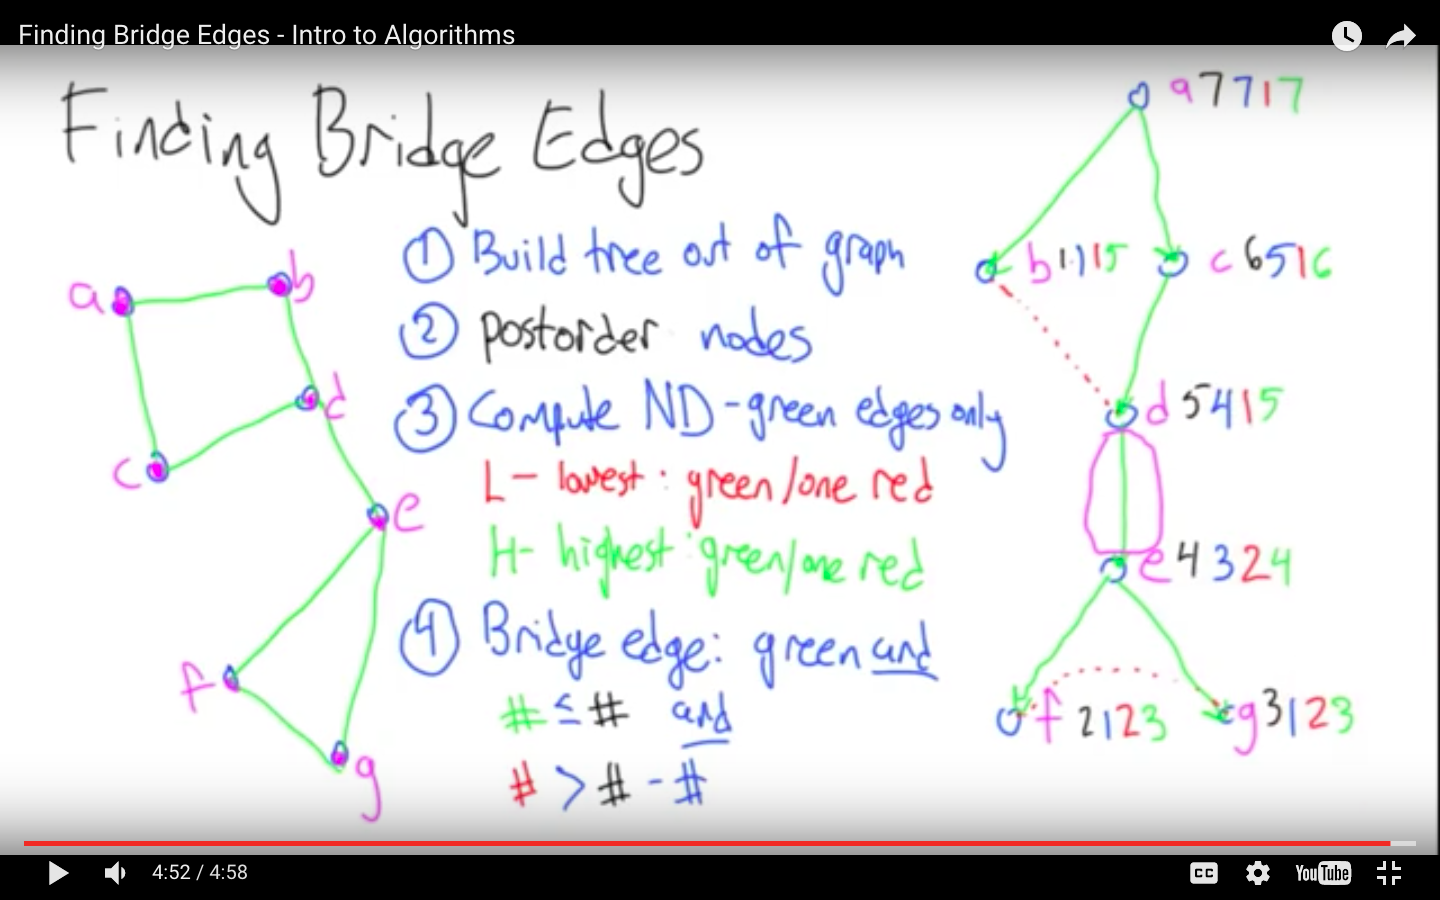 Finding Bridge Edges - Intro to Algorithms
Finding Bridge Edges
① Build tree out of graph
② postorder nodes
③ Compute ND - green edges only
L - lowest : green/one red
H - highest : green/one red
④ Bridge edge: green and
# ≤ # and
# > # - #
a
b
c
d
e
f
g
a 7 7 1 7
b 1 1 1 5
c 6 5 1 6
d 5 4 1 5
e 4 3 2 4
f 2 1 2 3
g 3 1 2 3
4:52 / 4:58
CC
YouTube